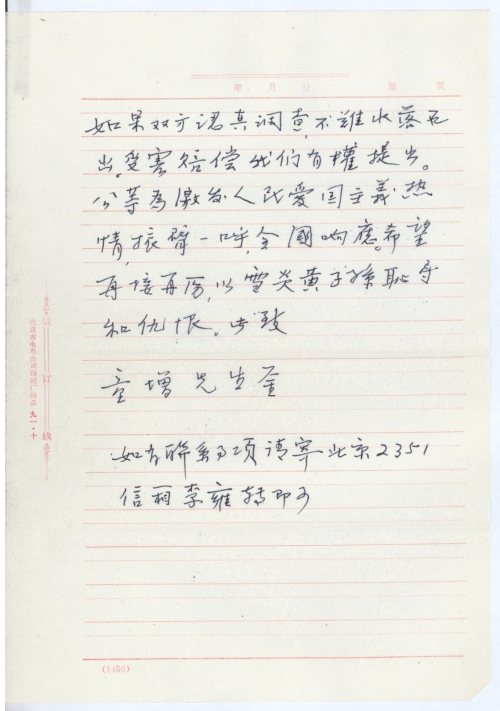 年 月 日 第 页
如果双方認真调查，不難水落石
出。受害赔偿我们有權提出。
公等為激发人民爱国主義热
情，振臂一呼，全國响應。希望
再接再厉，以雪炎黄子孫恥辱
和仇恨。此致
童增先生鉴
如有聯系事项请寄北京2351
信箱李雍转即可
装 订 線
北京市电车公司印刷厂出品 九一·十
(1456)